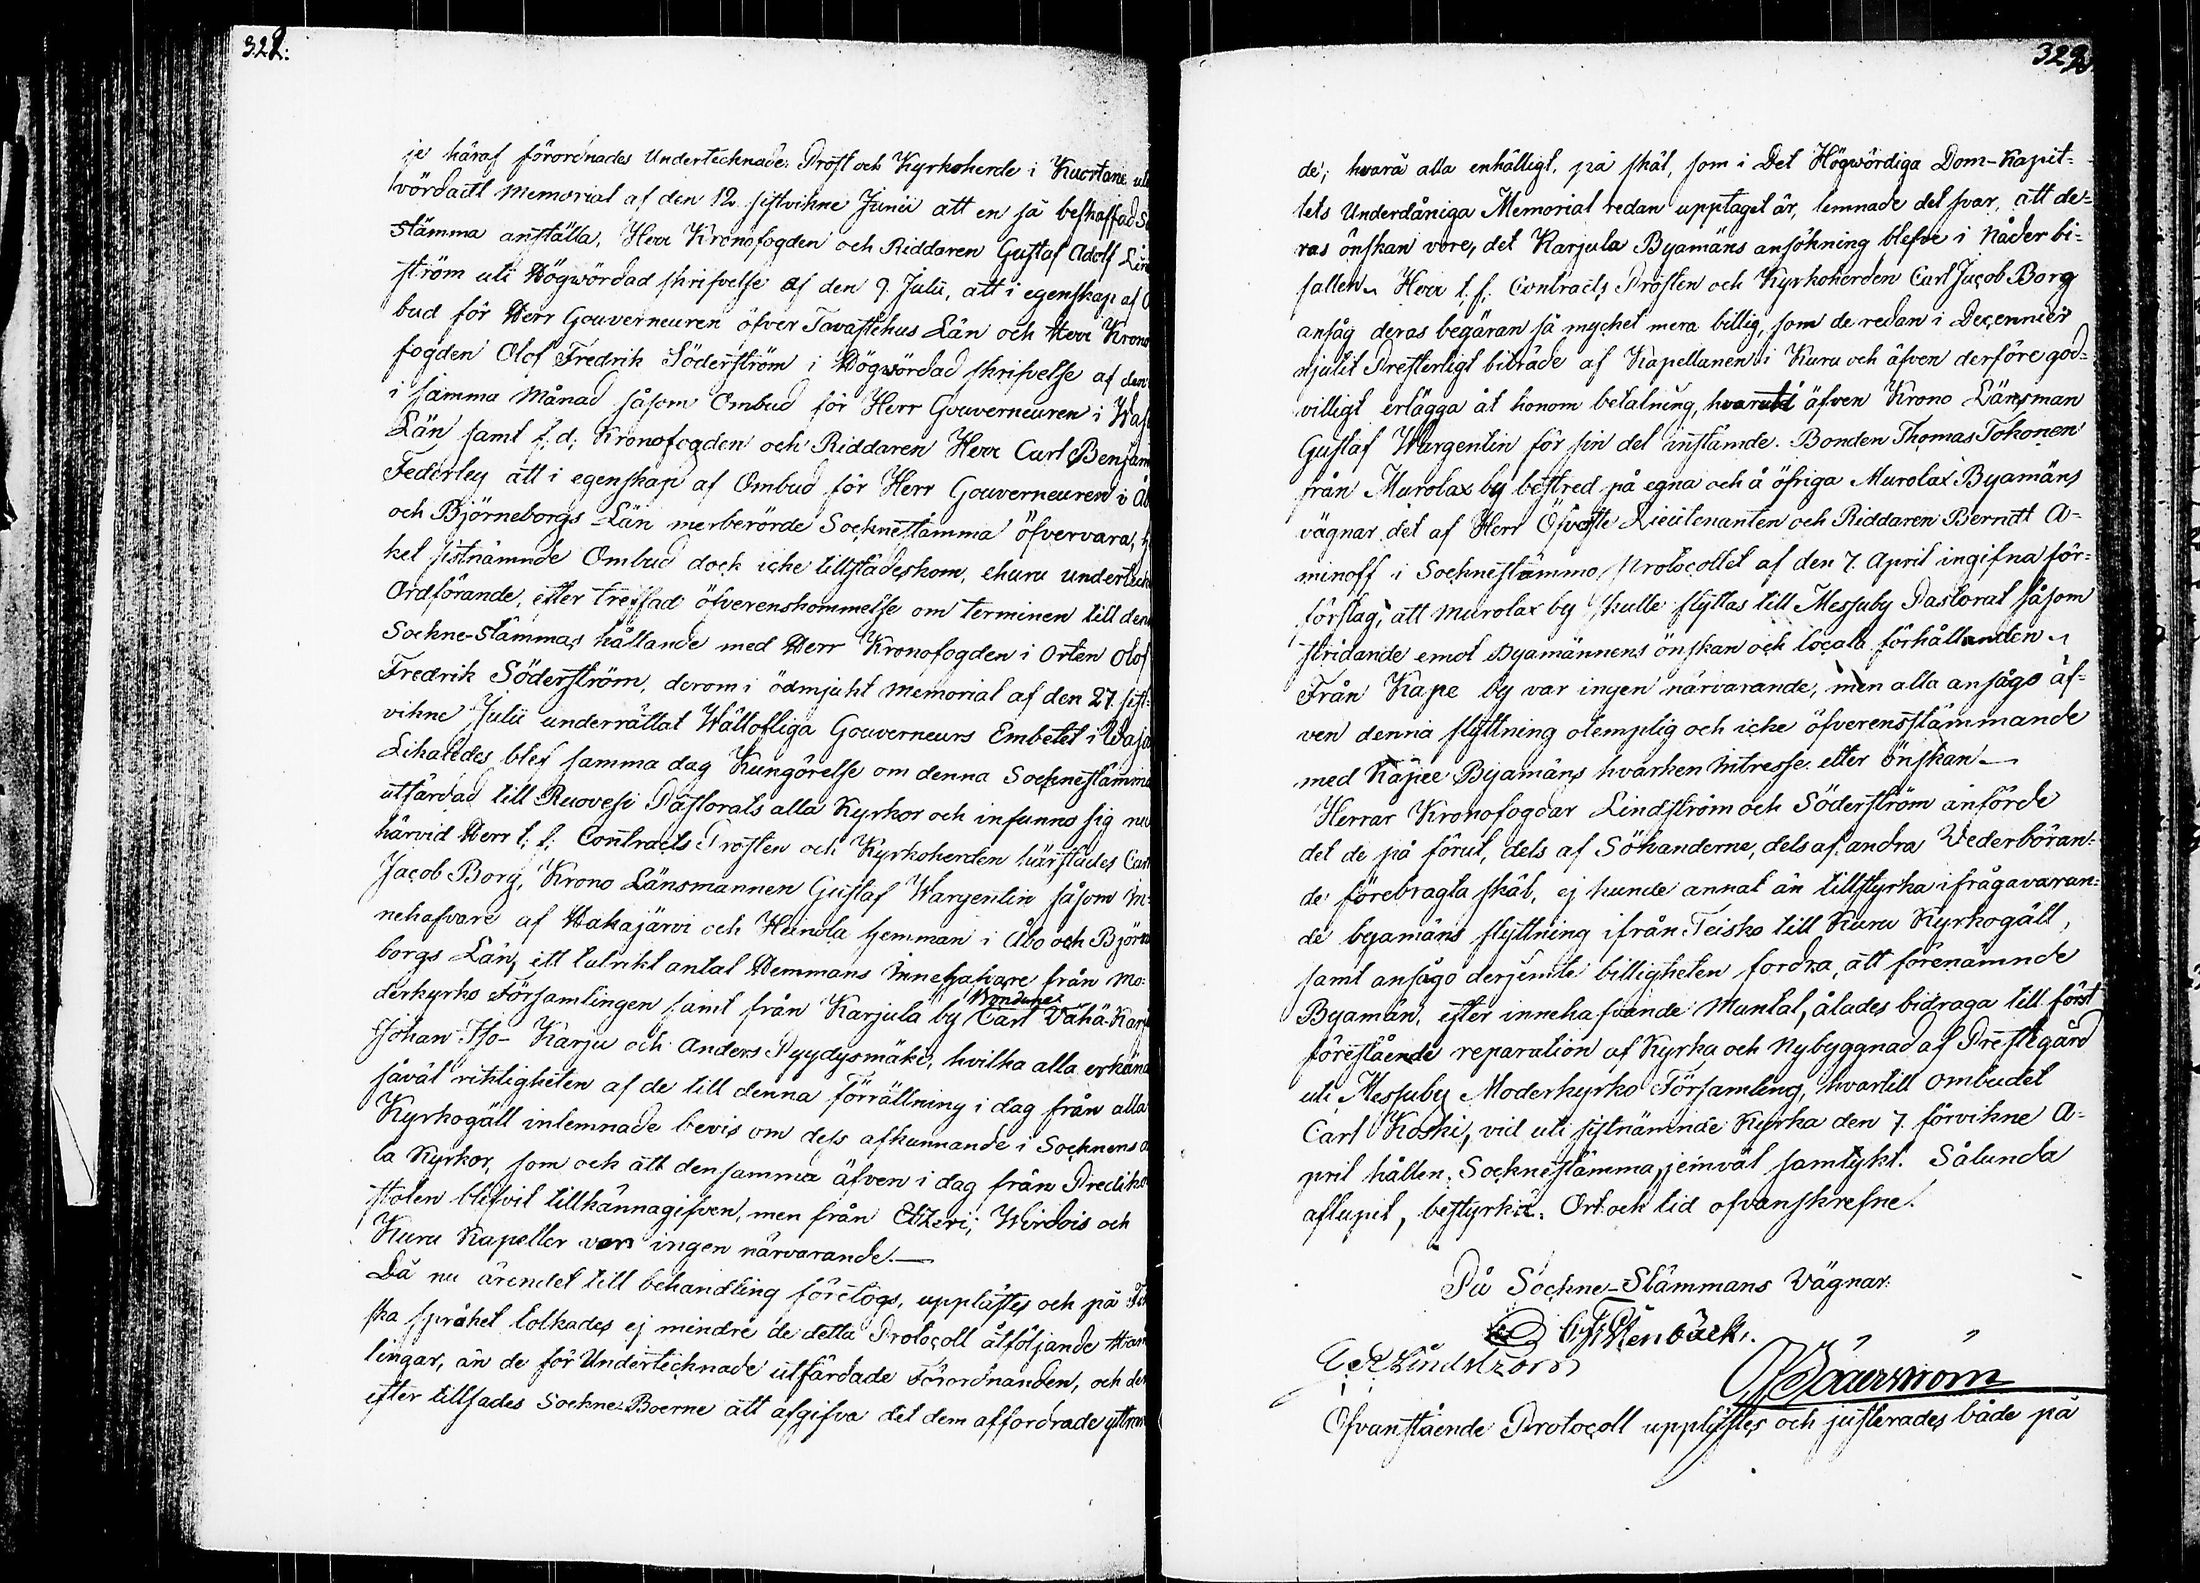 322.
je häraf förordnades Undertecknade Prost och Kyrkoherde i Kuortane
wördadt Memorial af den 12 sistvikne Junii att en så beskaffad
stämma anställa, Herr Kronofogden och Riddaren Gustaf Adolf Lind
ström uti Högwördad skrifvelse af den 9 Julii, att i egenskap af
bud för Herr Gouverneuren öfver Tavastehus Län och Herr Krono
fogden Olof Fredrik Söderström i Högwördad skrifvelse af den
i samma Månad såsom Ombud för Herr Gouverneuren i Wasa
Län samt f; d; Kronofogden och Riddaren Herr Carl Benjam
Federley att i egenskap af Ombud för Herr Gouverneuren i Åbo
och Björneborgs-Län merberörde Socknestämma öfvervara,
ket sistnämnde Ombud dock icke tillstädeskom, ehuru underteck
Ordförande, efter träffad öfverenskommelse om terminen till den
Sockne-Stämmas hållande med Herr Kronofogden i Orten Olof
Fredrik Söderström, derom i ödmjukt Memorial af den 27 sist-
vikne Julii underrättat Wällofliga Gouverneurs Embetet i Wasa
Likaledes blef samma dag Kungörelse om denna Sockenstämma
utfärdad till Ruovesi Pastorats alla Kyrkor och infunno sig nu
härvid Herr t; f; Contracts Prosten och Kyrkoherden härstädes Carl
Jacob Borg, Krono Länsmannen Gustaf Wargentin såsom In-
nehafvare af Hakajärvi och Heinola hemman i Åbo och Björne
borgs Län, ett talrikt antal Hemmans Innehafvare från Mo-
derkyrko Församlingen samt från Karjula by Bönderne Carl Vähä-Karju
Johan Iso-Karju och Anders Pyydysmäki, hvilka alla erkände
såväl riktigheten af de till denna förrättning i dag från alla
Kyrkogäll inlemnade bevis om dess afkunnande i Socknens al
la Kyrkor, som och att densamma äfven i dag från Prediko
stolen blifvit tillkännagifven, men från Etzeri, Wirdois och
Kuru Kapeller var ingen närvarande.—
Då nu ärendet till behandling företogs, upplästes och på Fin
ska språket tolkades ej mindre de detta Protocoll åtföljande Hand
lingar, än de för Undertecknade utfärdade Förordnanden, och der
efter tillsades Sockne-Boerne att afgifva det dem affordrade yttran
322
de; hvarå alla enhälligt, på skäl, som i Det Högwördiga Dom-Kapit-
lets Underdåniga Memorial redan upptaget är, lemnade det svar, att de-
ras önskan vore, det Karjula Byamäns ansökning blefve i Nåder bi-
fallen. Herr t. f. Contracts Prosten och Kyrkoherden Carl Jacob Borg
ansåg deras begäran så mycket mera billig, som de redan i Decennier
njutit Presterligt biträde af Kapellanen i Kuru och äfven derföre god-
villigt erlägga åt honom betalning, hvaruti äfven Krono Länsman
Gustaf Wargentin för sin del instämde. Bonden Thomas Tokonen
från Murolax by bestred på egna och å öfriga Murolax Byamäns
vägnar det af Herr Öfverste Lieutenanten och Riddaren Berndt A-
minoff i Socknestämmo Protocollet af den 7 April ingifna för-
förslag, att Murolax by skulle flyttas till Messuby Pastorat såsom
stridande emot Byamännens önskan och locala förhållanden.
Från Kape by var ingen närvarande, men alla ansågo äf-
ven denna flyttning olemplig och icke öfverensstämmande
med Kapee Byamäns hvarken intresse eller önskan—
Herrar Kronofogdar Lindström och Söderström anförde
det de på förut, dels af Sökanderne, dels af andra Vederböran-
de förebragta skäl, ej kunde annat än tillstyrka ifrågavaran-
de byamäns flyttning ifrån Teisko till Kuru Kyrkogäll,
samt ansågo derjemte billigheten fordra, att förenämnde
Byamän, efter innehafvande Mantal, ålades bidraga till först
förestående reparation af Kyrka och Nybyggnad af Prestegård
uti Messuby Moderkyrko Församling, hvartill ombudet
Carl Koski, vid uti sistnämnde Kyrka den 7 förvikne A-
pril hållen Socknestämma, jemväl samtykt. Sålunda
aflupit, bestyrkes. Ort och tid ofvanskrefne.
På Sockne-Stämmans Vägnar:
Stenbäck.
G A Lindström
O F Söderström
Ofvanstående Protocoll upplästes och justerades både på